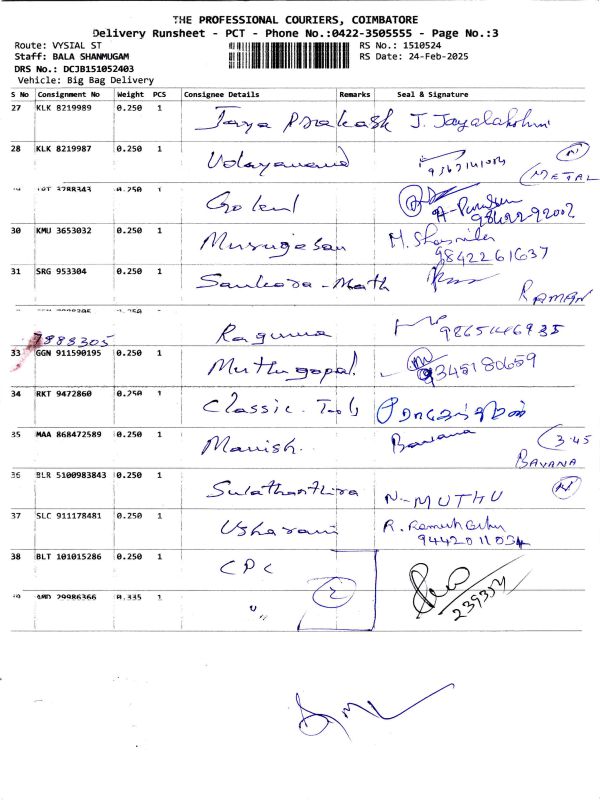 THE PROFESSIONAL COURIERS, COIMBATORE
Delivery Runsheet - PCT - Phone No.:0422-3505555 - Page No.:3
Route: VYSIAL ST
RS No.: 1510524
Staff: BALA SHANMUGAM
RS Date: 24-Feb-2025
DRS No.: DCJB151052403
Vehicle: Big Bag Delivery
S No Consignment No Weight PCS Consignee Details Remarks Seal & Signature
27 KLK 8219989 0.250 1 Jaya Prakash J. Jayalakshmi
28 KLK 8219987 0.250 1 Udayanand
METAL
3288343 0.250 1 Gokul
98422-92002
30 KMU 3653032 0.250 1 Murugesan M.
9842261637
31 SRG 953304 0.250 1 Sankara - Math
RAMAN
7888305 9865446935
33 GGN 911590195 0.250 1 Muthugopal
9345180659
34 RKT 9472860 0.250 1 Classic. Tools
35 MAA 868472589 0.250 1 Manish. Bavana
3.45
BAVANA
36 BLR 5100983843 0.250 1 N-MUTHU
37 SLC 911178481 0.250 1 Usharani R.
38 BLT 101015286 0.250 1 CPC
2
239354
29986366 0.335 1 "